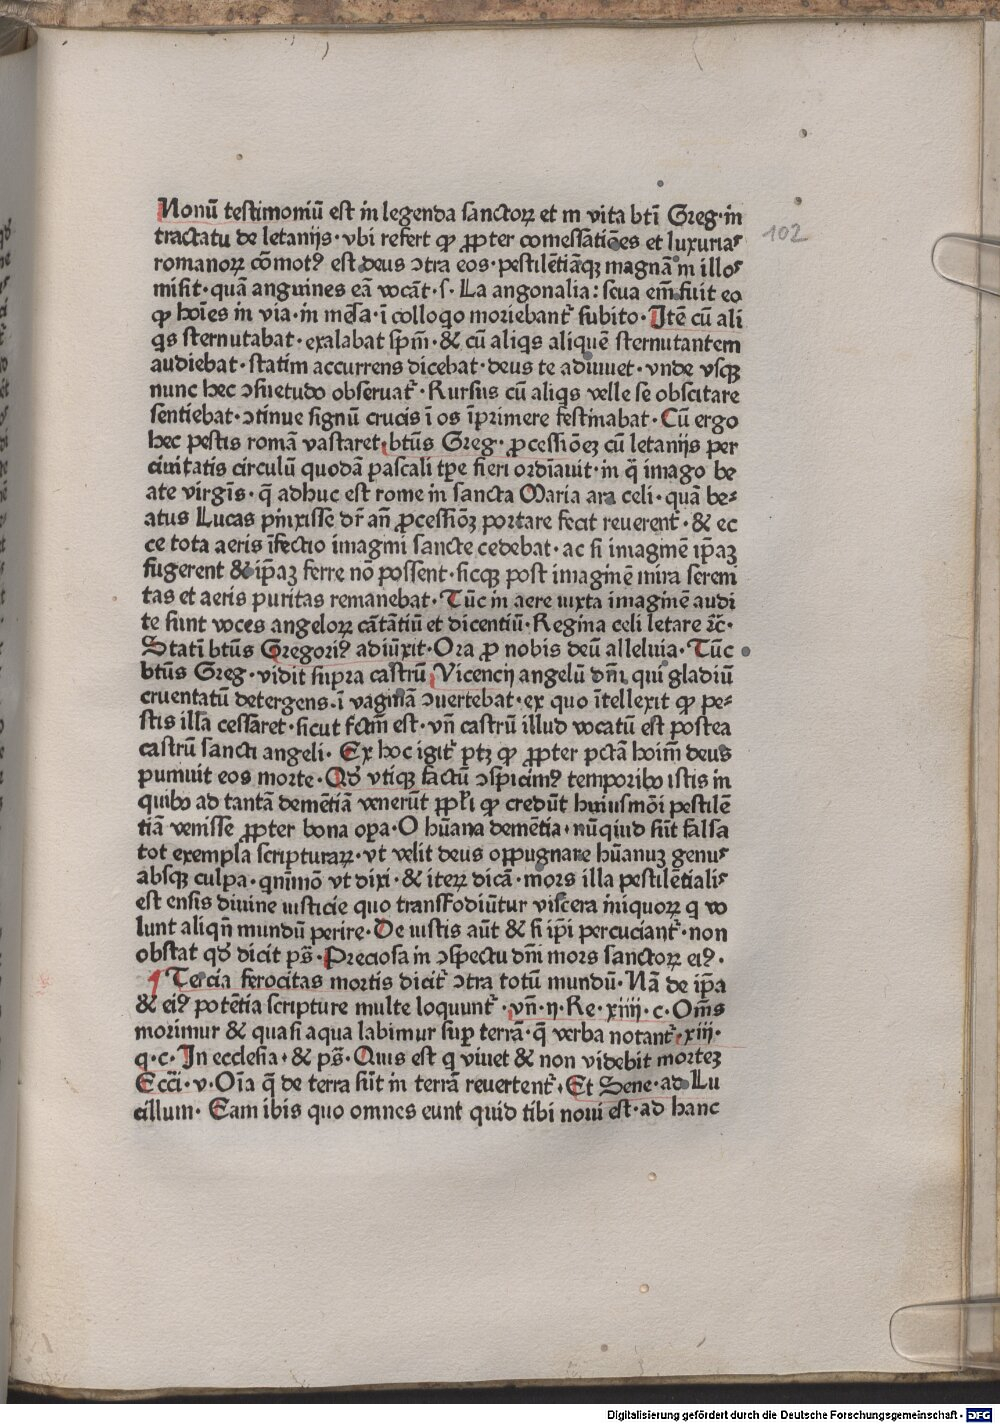 Nonū testimoniū est in legenda sanctoꝝ et in vita btī Greg·in
tractatu de letanijs·vbi refert ꝙ ꝓpter comessatiōes et luxurias
romanoꝝ cōmotꝰ est deus ↄtra eos·pestilētiāqꝫ magnā in illos
misit·quā anguines eā vocāt·s·La angonalia: seua em̄ fuit eo
ꝙ hoīes in via·in mēsa·ī colloqo moriebant᷑ subito·Itē cū ali
qs sternutabat·exalabat spm̄·& cū aliqs aliquē sternutantem
audiebat·statim accurrens dicebat·deus te adiuuet·vnde vsqꝫ
nunc hec ↄsuetudo obseruat᷑·Rursus cū aliqs velle se obscitare
sentiebat·ↄtinue signū crucis ī os īprimere festinabat·Cū ergo
hec pestis romā vastaret·btūs Greg·ꝓcessiōeꝫ cū letanijs per
ciuitatis circulū quodā pascali tꝑe fieri ordīauit·in q̄ imago be
ate virgīs·q̄ adhuc est rome in sancta Maria ara celi·quā be⸗
atus Lucas pinxisse dr̄ an̄ ꝓcessiōꝫ portare fecit reuerent᷑·& ec
ce tota aeris īfectio imagini sancte cedebat·ac si imaginē ip̄aꝫ
fugerent & ip̄aꝫ ferre nō possent·sicqꝫ post imaginē mira sereni
tas et aeris puritas remanebat·Tūc in aere iuxta imaginē audi
te sunt voces angeloꝝ cātātiū et dicentiū·Regina celi letare ⁊c̄·
Statī btūs Gregoriꝰ adiūxit·Ora ꝓ nobis deū alleluia·Tūc
btūs Greg·vidit supra castrū Vicencij angelū dn̄i qui gladiū
cruentatū detergens·ī vaginā ↄuertebat·ex quo ītellexit ꝙ pe⸗
stis illa cessaret·sicut fctm̄ est·vn̄ castrū illud vocatū est postea
castrū sancti angeli·Ex hoc igit᷑ ptꝫ ꝙ ꝓpter pctā hoim̄ deus
puniuit eos morte·Qđ vtiqꝫ factū ↄspicimꝰ temporibo istis in
quibo ad tantā demētiā venerūt ꝓpl̄i ꝙ credūt huiusmōi pestilē
tiā venisse ꝓpter bona oꝑa·O hūana demētia·nūqiud sūt falsa
tot exempla scripturaꝝ·vt velit deus oppugnare hūanuꝫ genus
absqꝫ culpa·qnīmō vt dixi·& iteꝝ dicā·mors illa pestilētialis
est ensis diuine iusticie quo transfodiūtur viscera iniquoꝝ q vo
lunt aliqn̄ mundū perire·De iustis aūt & si ip̄i percuciant᷑·non
obstat qđ dicit ps̄·Preciosa in ↄspectu dn̄i mors sanctoꝝ eiꝰ·
¶ Tercia ferocitas mortis dicit᷑ ↄtra totū mundū·Nā de ip̄a
& eiꝰ potētia scripture multe loquunt᷑·vn̄·ij·Re·xiiij·c·Om̄s
morimur & quasi aqua labimur suꝑ terrā·q̄ verba notant᷑·xiij·
q·c·In ecclesia·& ps̄·Quis est q viuet & non videbit morteꝫ
Ecc̄i·v·Oīa q̄ de terra sūt in terrā reuertent᷑·Et Sene·ad Lu
cillum·Eam ibis quo omnes eunt quid tibi noui est·ad hanc
102
Digitalisierung gefördert durch die Deutsche Forschungsgemeinschaft · DFG